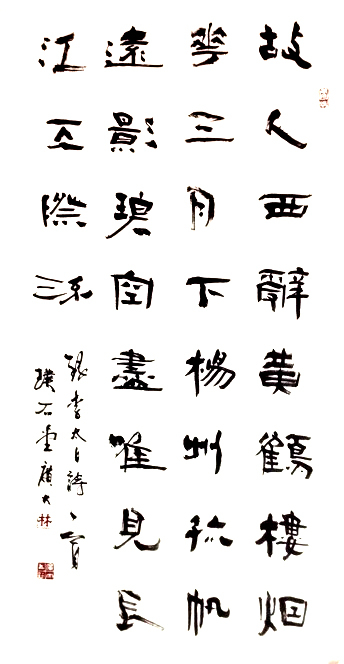 故人西辭黃鶴樓烟
華三月下楊州孤帆
遠影碧空盡唯見長
江天際流
錄李太白詩一首
石堂